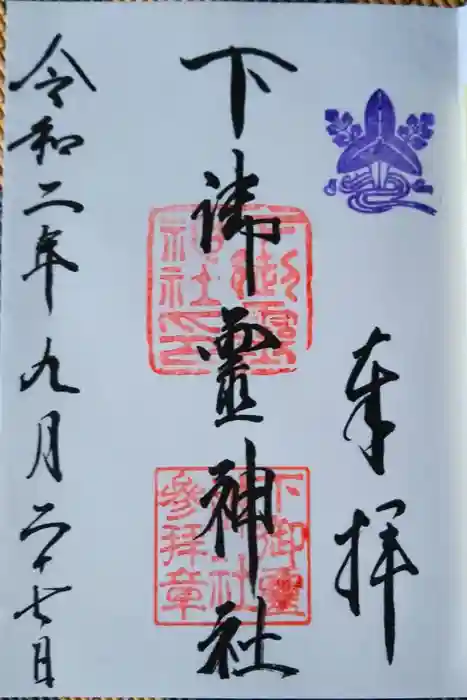 奉拝
下御靈神社
下御霊神社印
下御靈神社参拝章
令和二年九月二十七日